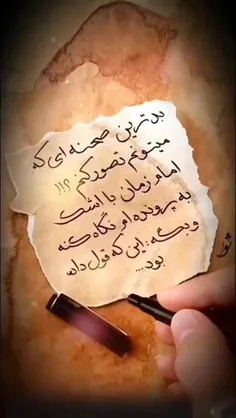 بدترین صحنه ای که
میتونم تصور کنم ؟!!
امام زمان با اشک
به پرونده او نگاه کنه
وبگه: این که قول داده
بود...